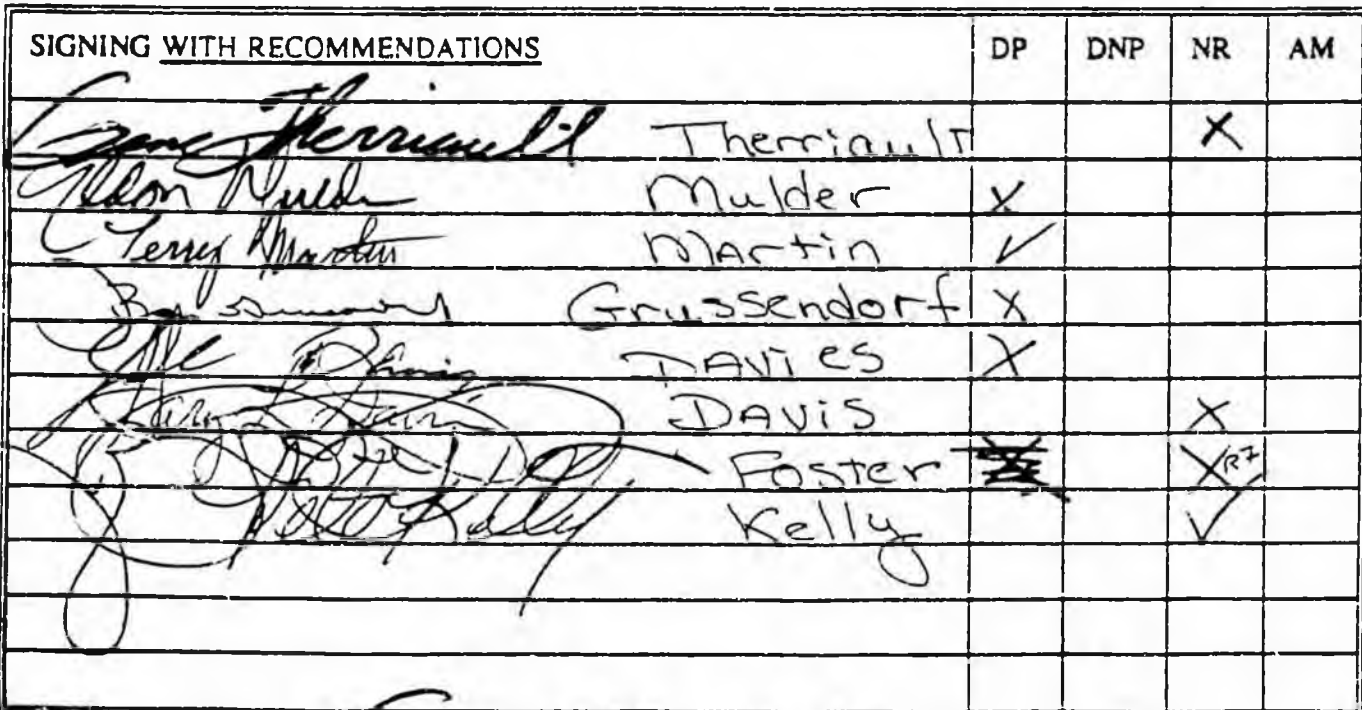 SIGNING WITH RECOMMENDATIONS DP DNP NR AM
Gene Therriault Therriault X
Eldon Mulder Mulder X
Terry Martin Martin ✓
Grussendorf X
Davies X
Davis X
Foster X
Kelly Kelly ✓